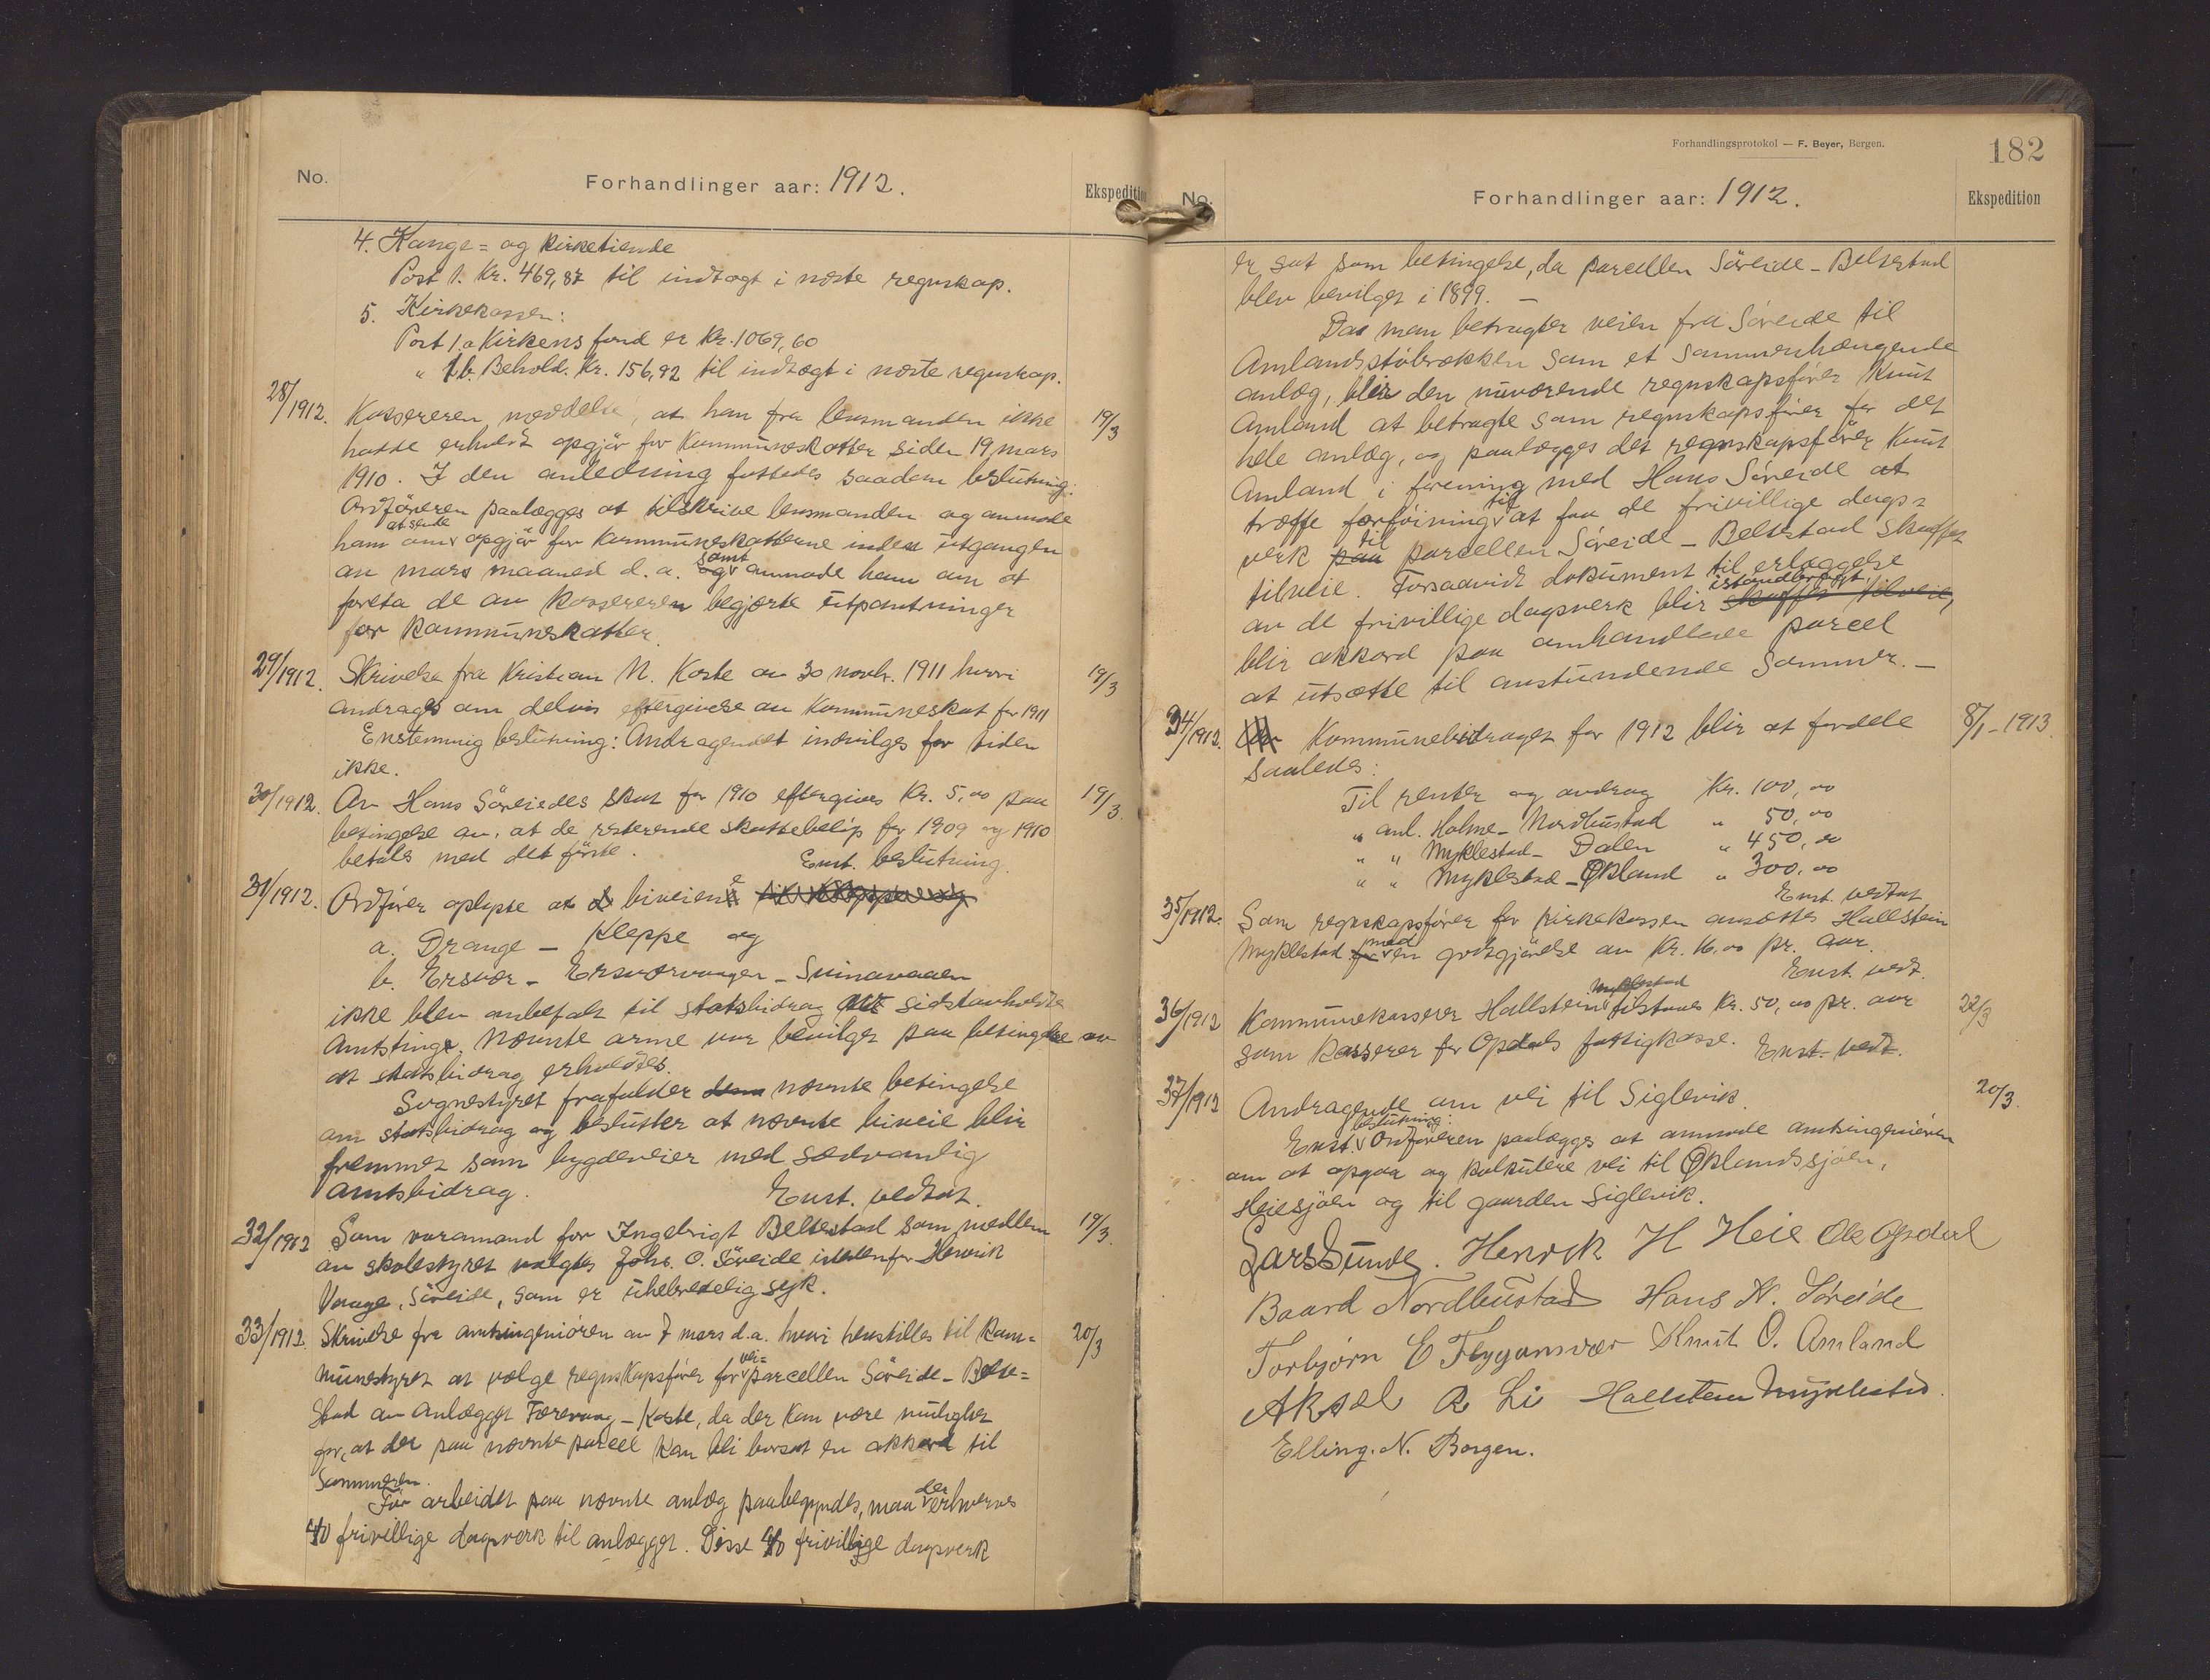 No.
Forhandlinger aar: 1912.
Ekspedition
4. Konge= og kirketiende
Post 1. Kr. 469,87 til indtægt i næste regnskap.
5. Kirkekassen:
Post 1.a Kirkens fond er Kr. 1069,60
" 1b. Behold. Kr. 156,92 til indtægt i næste regnskap.
28/1912. Kassereren meddelte, at han fra lensmanden ikke 19/3
hadde erholdt opgjør for Kommuneskatter siden 19 mars
1910. I den anledning fattedes saadan beslutning:
Ordføreren paalægges at tilskrive lensmanden og anmode
ham om at sende opgjør for kommuneskatterne inden utgangen
av mars maaned d.a. og samt anmode ham om at
foreta de av kassereren begjærte utpantninger
for kommuneskatter.
29/1912. Skrivelse fra Kristian N. Koste av 30 novbr. 1911 hvori 19/3
andrages om delvis eftergivelse av Kommuneskat for 1911
Enstemmig beslutning: Andragendet indvilges for tiden
ikke.
30/1912. Av Hans Søreides skat for 1910 eftergives Kr. 5,00 paa 19/3.
betingelse av, at de resterende skattebeløp for 1909 og 1910
betales med det første. Enst. beslutning.
31/1912. Ordfører oplyste at biveiene
a. Drange – Kleppe og
b. Ersvær – Ersværvaagen – Svinavaaen
ikke blev anbefalt til statsbidrag sidstavholdte
Amtsting. Nævnte arme var bevilget paa betingelse av
at statsbidrag erholdes.
Sognestyret frafalder nævnte betingelse
om statsbidrag og beslutter at nævnte biveie blir
fremmet som bygdeveier med sædvanlig
amtsbidrag. Enst. vedtat.
32/1912 Som varamand for Ingebrigt Belsestad som medlem 19/3.
av skolestyret valgtes Johs. O. Søreide istedenfor Henrik
Vaage, Søreide, som er uhelbredelig syk.
33/1912. Skrivelse fra amtsingeniøren av 7 mars d.a. hvori henstilles til kom= 20/3
munestyret at vælge regnskapsfører for vei= parcellen Søreide – Belse=
stad av anlægget Færevaag – Koste, da der kan være mulighet
for, at der paa nævnte parcel kan bli bortsat en akkord til
Sommeren.
Før arbeidet paa nævnte anlæg paabegyndes, maa der erhverves
40 frivillige dagsverk til anlægget. Disse 40 frivillige dagsverk
Forhandlingsprotokol — F. Beyer, Bergen.
182
No.
Forhandlinger aar: 1912.
Ekspedition
er sat som betingelse, da parcellen Søreide – Belsestad
blev bevilget i 1899. –
Da man betragter veien fra Søreide til
Amlandsstøbrekken som et sammenhængende
anlæg, blir den nuværende regnskapsfører Knut
Amland at betragte som regnskapsfører for det
hele anlæg, og paalægges det regnskapsfører Knut
Amland i forening med Hans Søreide at
træffe forføining til at faa de frivillige dags=
verk paa til parcellen Søreide – Belsestad skaffet
tilveie. Forsaavidt dokument til erlæggelse
av de frivillige dagsverk blir skaffet tilveie, istandbragt,
blir akkord paa omhandlede parcel
at utsætte til anstundende sommer. –
34/1912. Kommunebidraget for 1912 blir at fordele 8/1-1913.
saaledes:
Til renter og avdrag Kr. 100,00
" anl. Holme – Nordhustad " 50,00
" " Myklestad – Dalen " 450,00
" " Myklestad – Økland " 300,00
Enst. vedtat
35/1912. Som regnskapsfører for kirkekassen ansættes Hallstein
Myklestad for med en godtgjørelse av Kr. 16,00 pr. aar.
Enst. vedt.
36/1912 Kommunekasserer Hallstein Myklestad tilstaaes Kr. 50,00 pr. aar 22/3
som kasserer for Opdals fattigkasse. Enst. vedt.
37/1912 Andragende om vei til Siglevik. 20/3.
Enst. beslutning: Ordføreren paalægges at anmode amtsingeniøren
om at opgaa og kalkulere vei til Øklandssjøen,
Heiesjøen og til gaarden Siglevik.
Lars Sunde. Henrik H Heie Ole Opdal
Baard Nordhustad Hans N. Søreide
Torbjørn E Flygansvær Knut O. Amland
Aksel A Li Hallstein Myklestad.
Elling. N. Borgen.